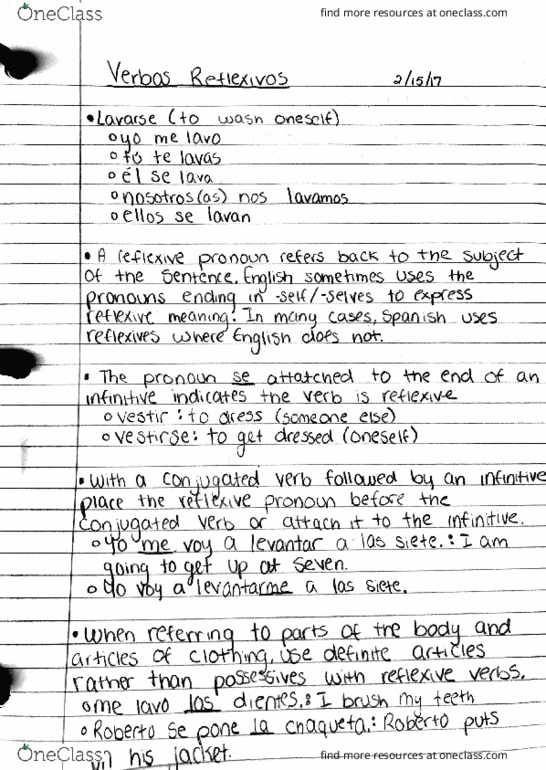 OneClass find more resources at oneclass.com
Verbos Reflexivos 2/15/17
•Lavarse (to wash oneself)
o yo me lavo
o tú te lavas
o él se lava
o nosotros(as) nos lavamos
o ellos se lavan
• A reflexive pronoun refers back to the subject
of the sentence. English sometimes uses the
pronouns ending in -self/-selves to express
reflexive meaning. In many cases, Spanish uses
reflexives where English does not.
• The pronoun se attatched to the end of an
infinitive indicates the verb is reflexive
o vestir : to dress (someone else)
o vestirse: to get dressed (oneself)
• With a conjugated verb followed by an infinitive
place the reflexive pronoun before the
conjugated verb or attach it to the infinitive.
o Yo me voy a levantar a las siete. : I am
going to get up at seven.
o Yo voy a levantarme a las siete.
• When referring to parts of the body and
articles of clothing, use definite articles
rather than possessives with reflexive verbs.
o me lavo los dientes. : I brush my teeth
o Roberto se pone la chaqueta. : Roberto puts
on his jacket.
OneClass find more resources at oneclass.com